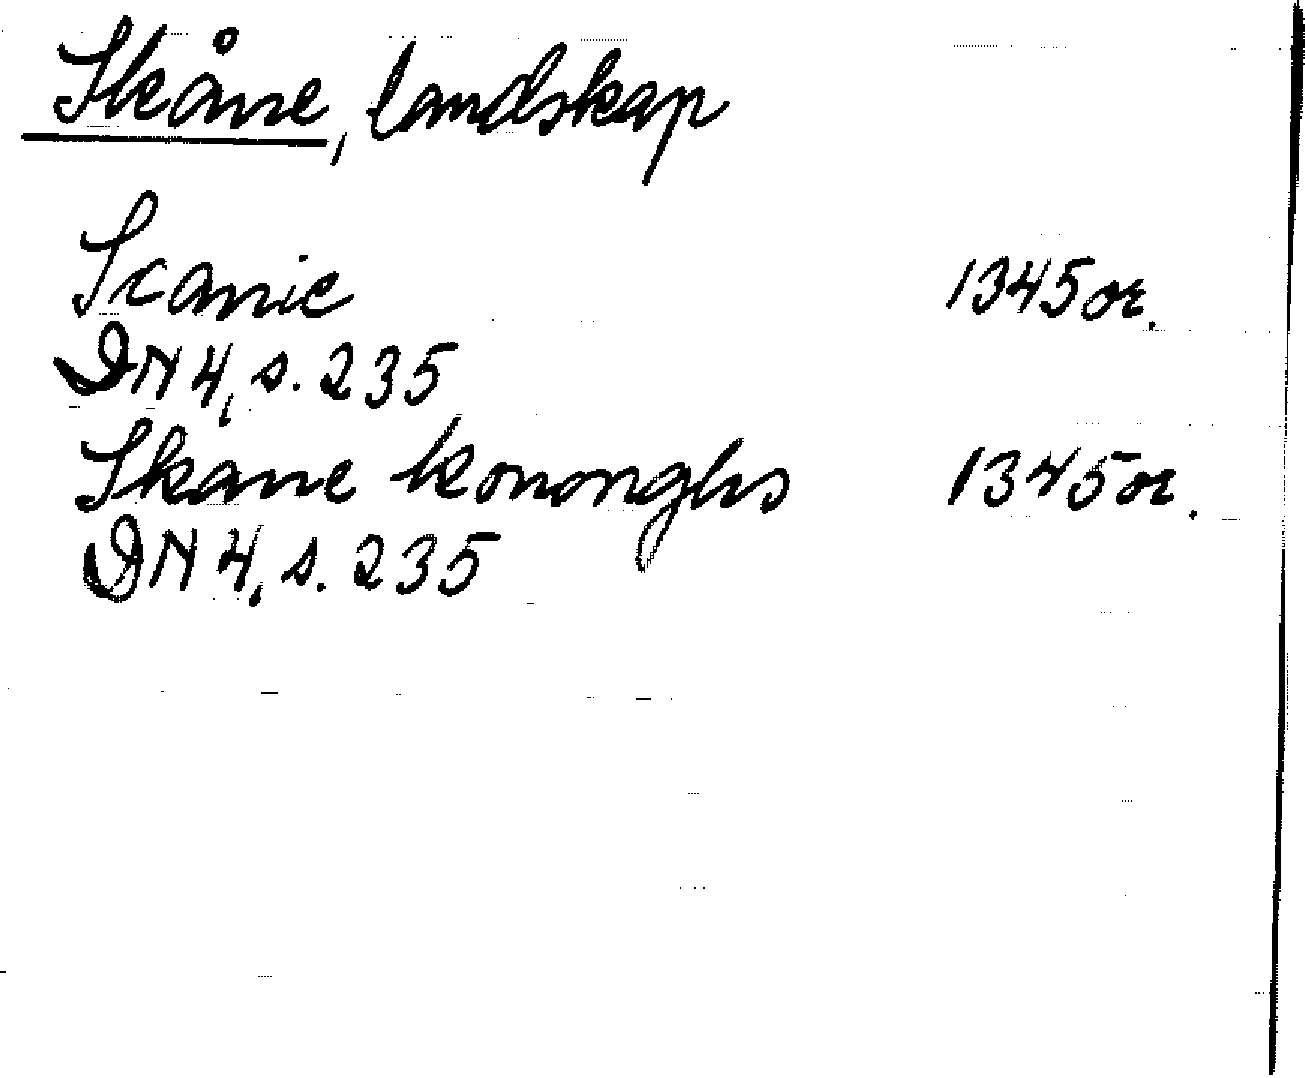 Skåne, landskap
Scanie 1345 or.
DN 4, s. 235
Skane kononghs 1345 or.
DN 4, s. 235